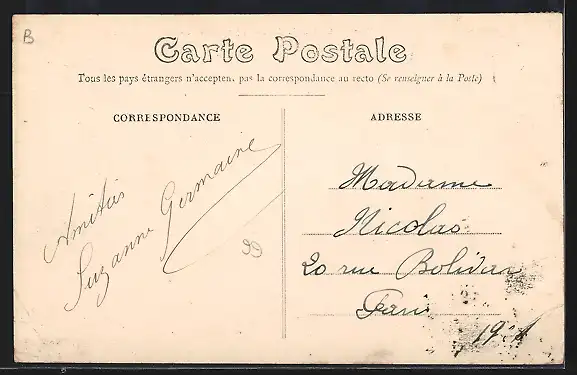 B
Carte Postale
Tous les pays étrangers n'acceptent pas la correspondance au recto (Se renseigner à la Poste)
CORRESPONDANCE
Amitiés
Suzanne Germaine
99
ADRESSE
Madame
Nicolas
20 rue Bolivar
Paris
19e